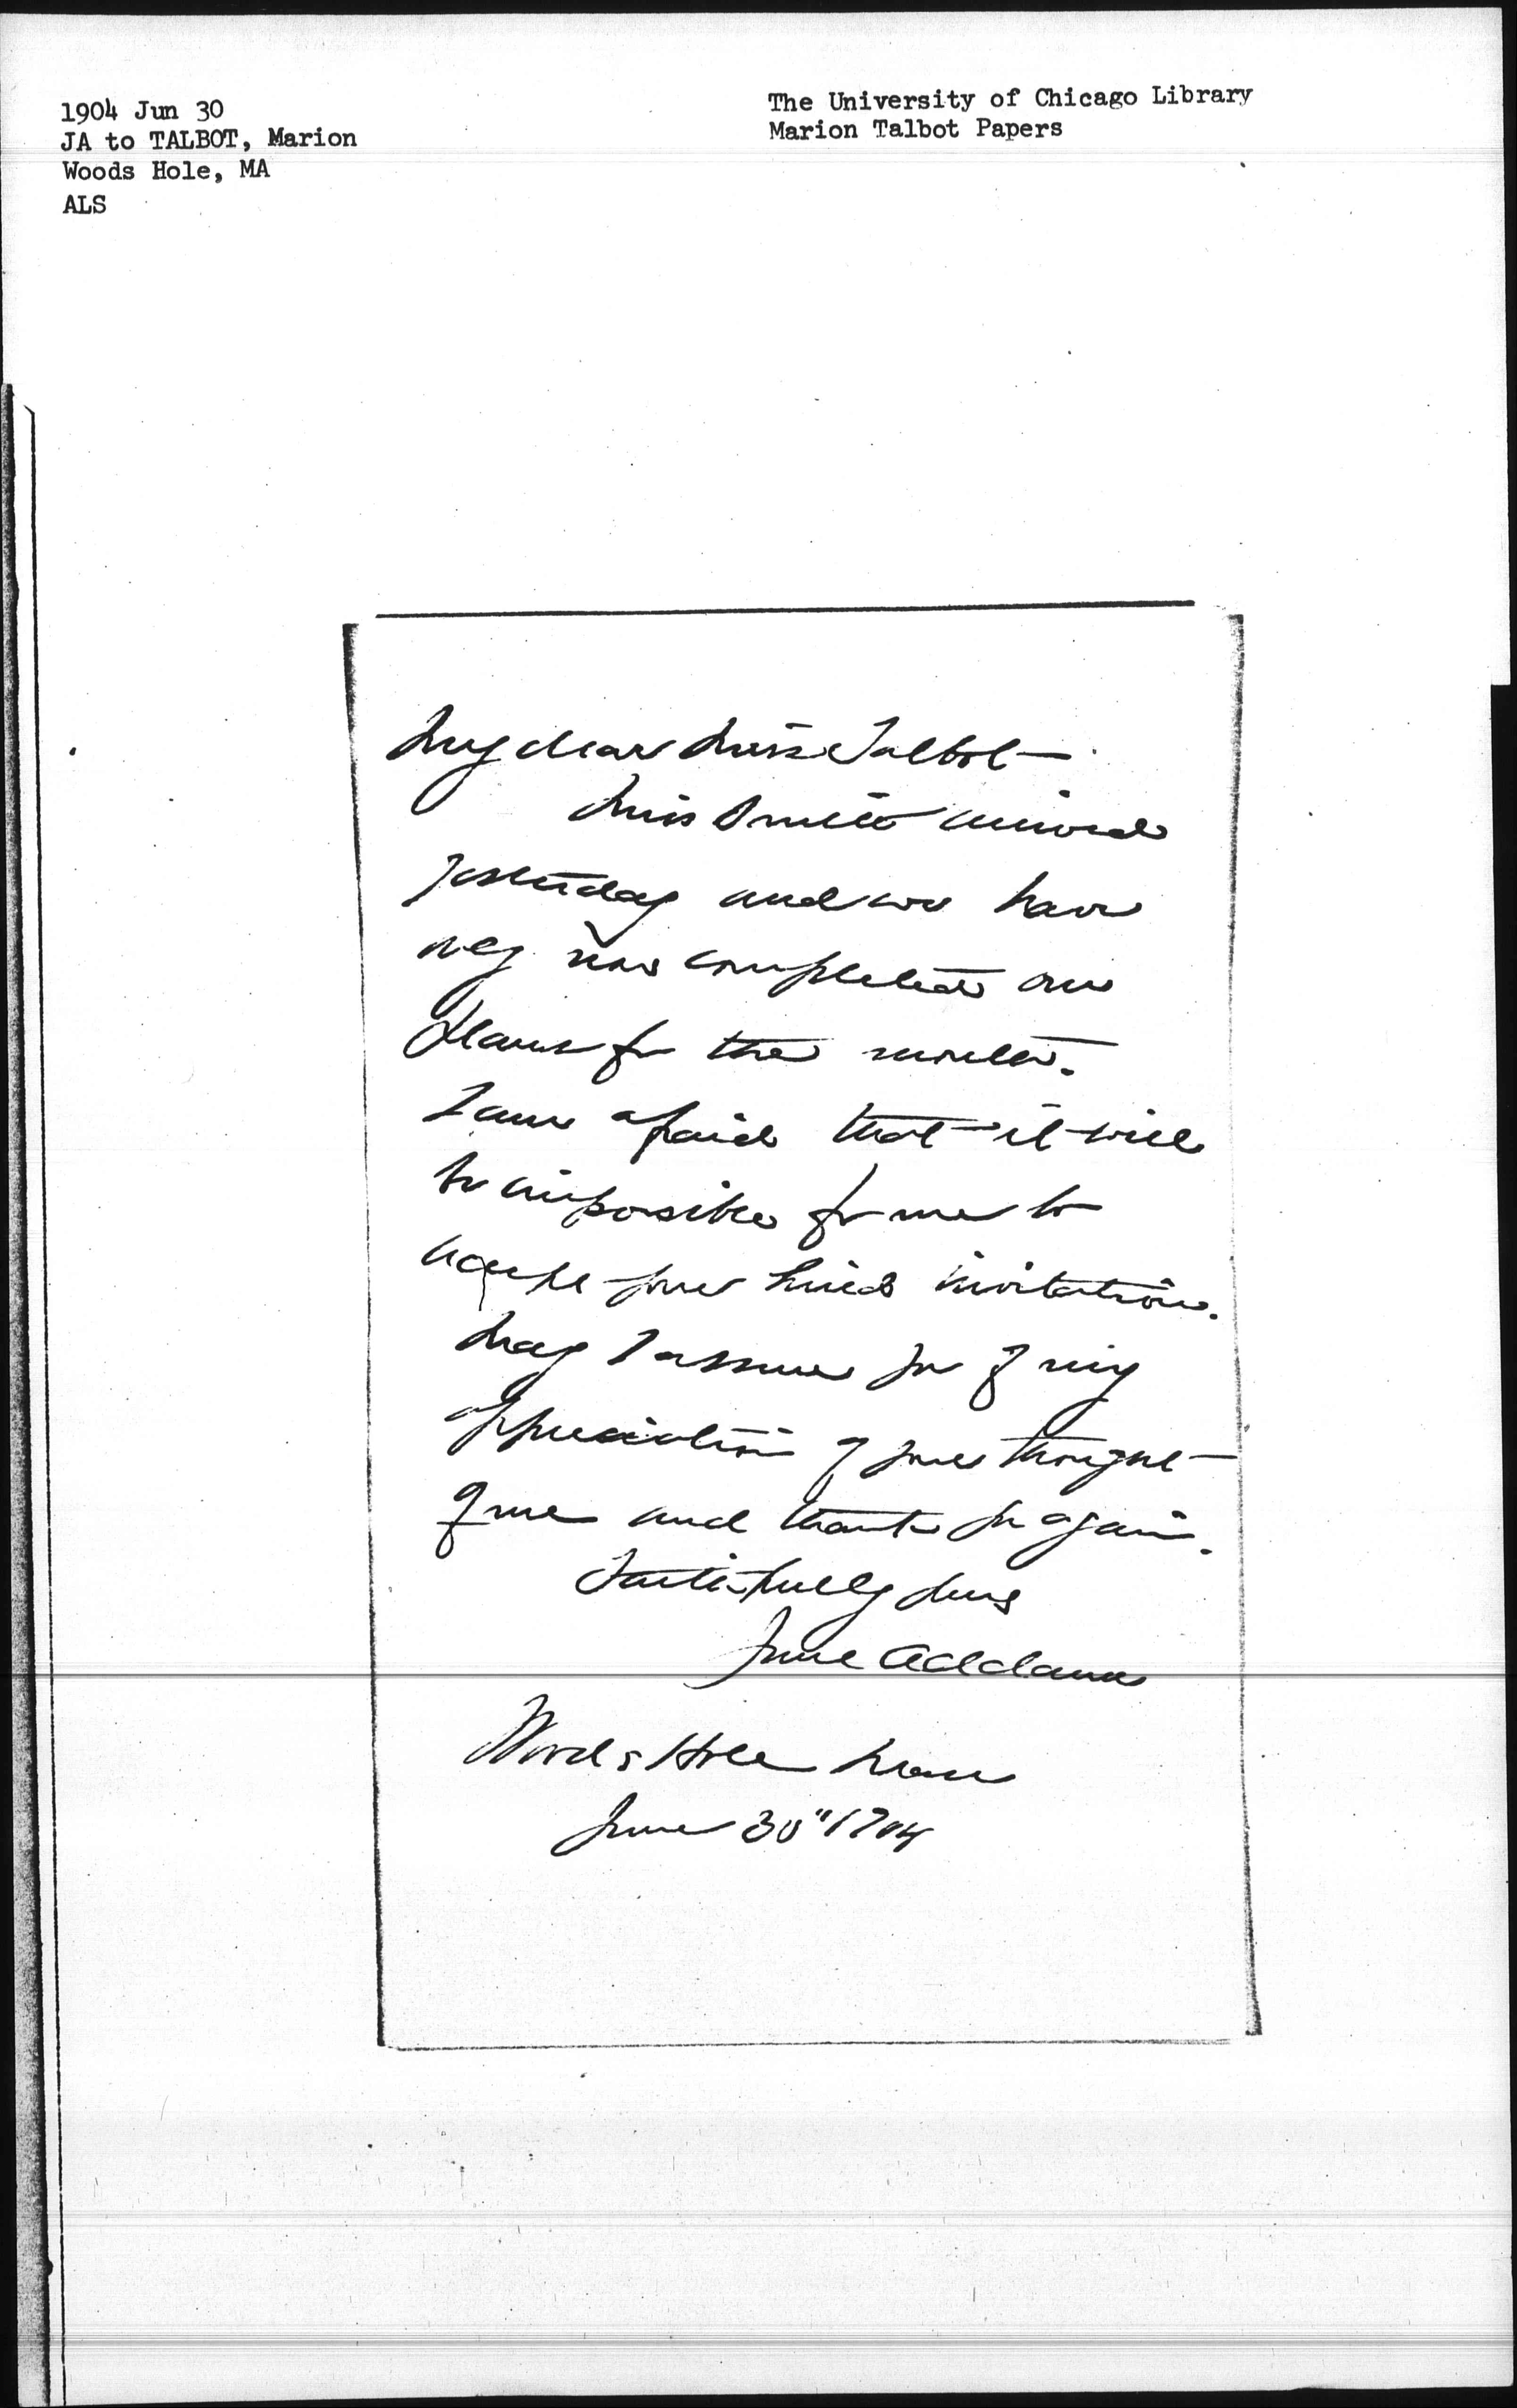 1904 Jun 30
JA to TALBOT, Marion
Woods Hole, MA
ALS
The University of Chicago Library
Marion Talbot Papers
My dear Miss Talbot —
Miss Smith arrived
yesterday and we have
only now completed our
plans for the month.
I am afraid that it will
be impossible for me to
accept your kind invitation.
May I assure you of my
appreciation of your thought
of me and thank you again.
Faithfully yours
Jane Addams
Woods Hole Mass
June 30" 1904